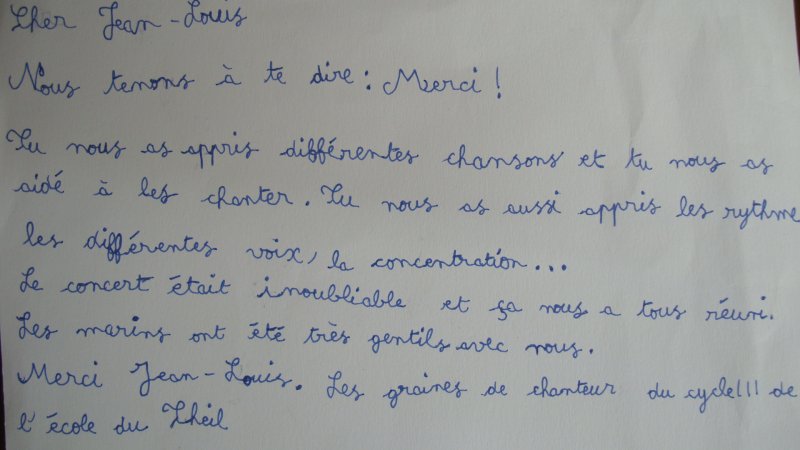 Cher Jean-Louis
Nous tenons à te dire : Merci !
Tu nous as appris différentes chansons et tu nous as
aidé à les chanter. Tu nous as aussi appris les rythme
les différentes voix, la concentration...
Le concert était inoubliable et ça nous a tous réuni.
Les marins ont été très gentils avec nous.
Merci Jean-Louis. Les graines de chanteur du cycle III de
l'école du Theil